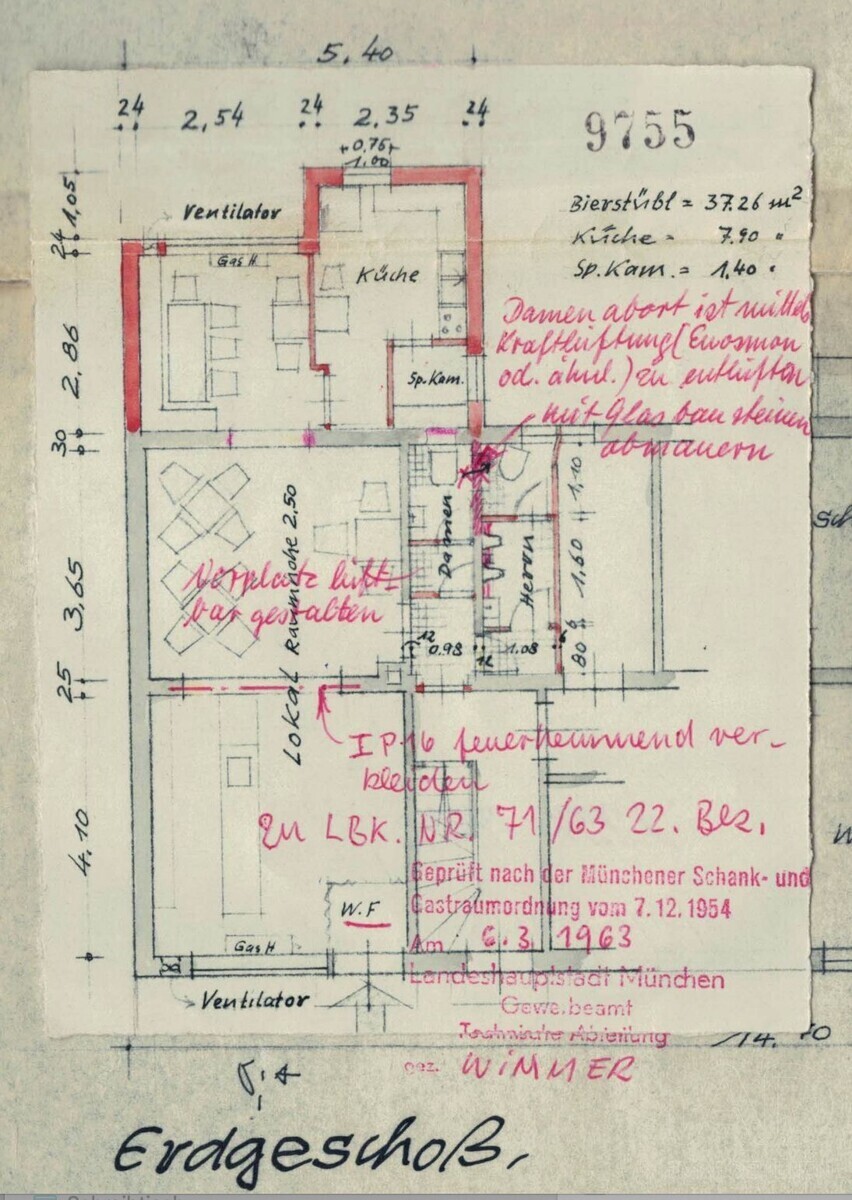 5,40
24 2,54 24 2,35 24
9755
0,75
1.00
Bierstübl = 37.26 m²
Küche = 7.90 "
Sp.Kam. = 1,40 "
1,05
24
2,86
30
3,65
25
4.10
Ventilator
Gas H
Küche
Sp.Kam.
Damen abort ist mittels
Kraftlüftung (Enosmon
od. ähnl.) zu entlüften
mit Glasbausteinen
abmauern
Damen
Herrn
1,10
1,60
6
80
12
0,98
12
1.08
6
Lokal Raumhöhe 2,50
Vorplatz lüft-
bar gestalten
I P 16 feuerhemmend ver-
kleiden
zu LBK. NR. 71/63 22. Bez.
Geprüft nach der Münchener Schank- und
Gastraumordnung vom 7.12.1954
Am 6.3. 1963
Landeshauptstadt München
Gewerbeamt
Technische Abteilung
gez. WIMMER
W.F
Gas H
Ventilator
Erdgeschoß.